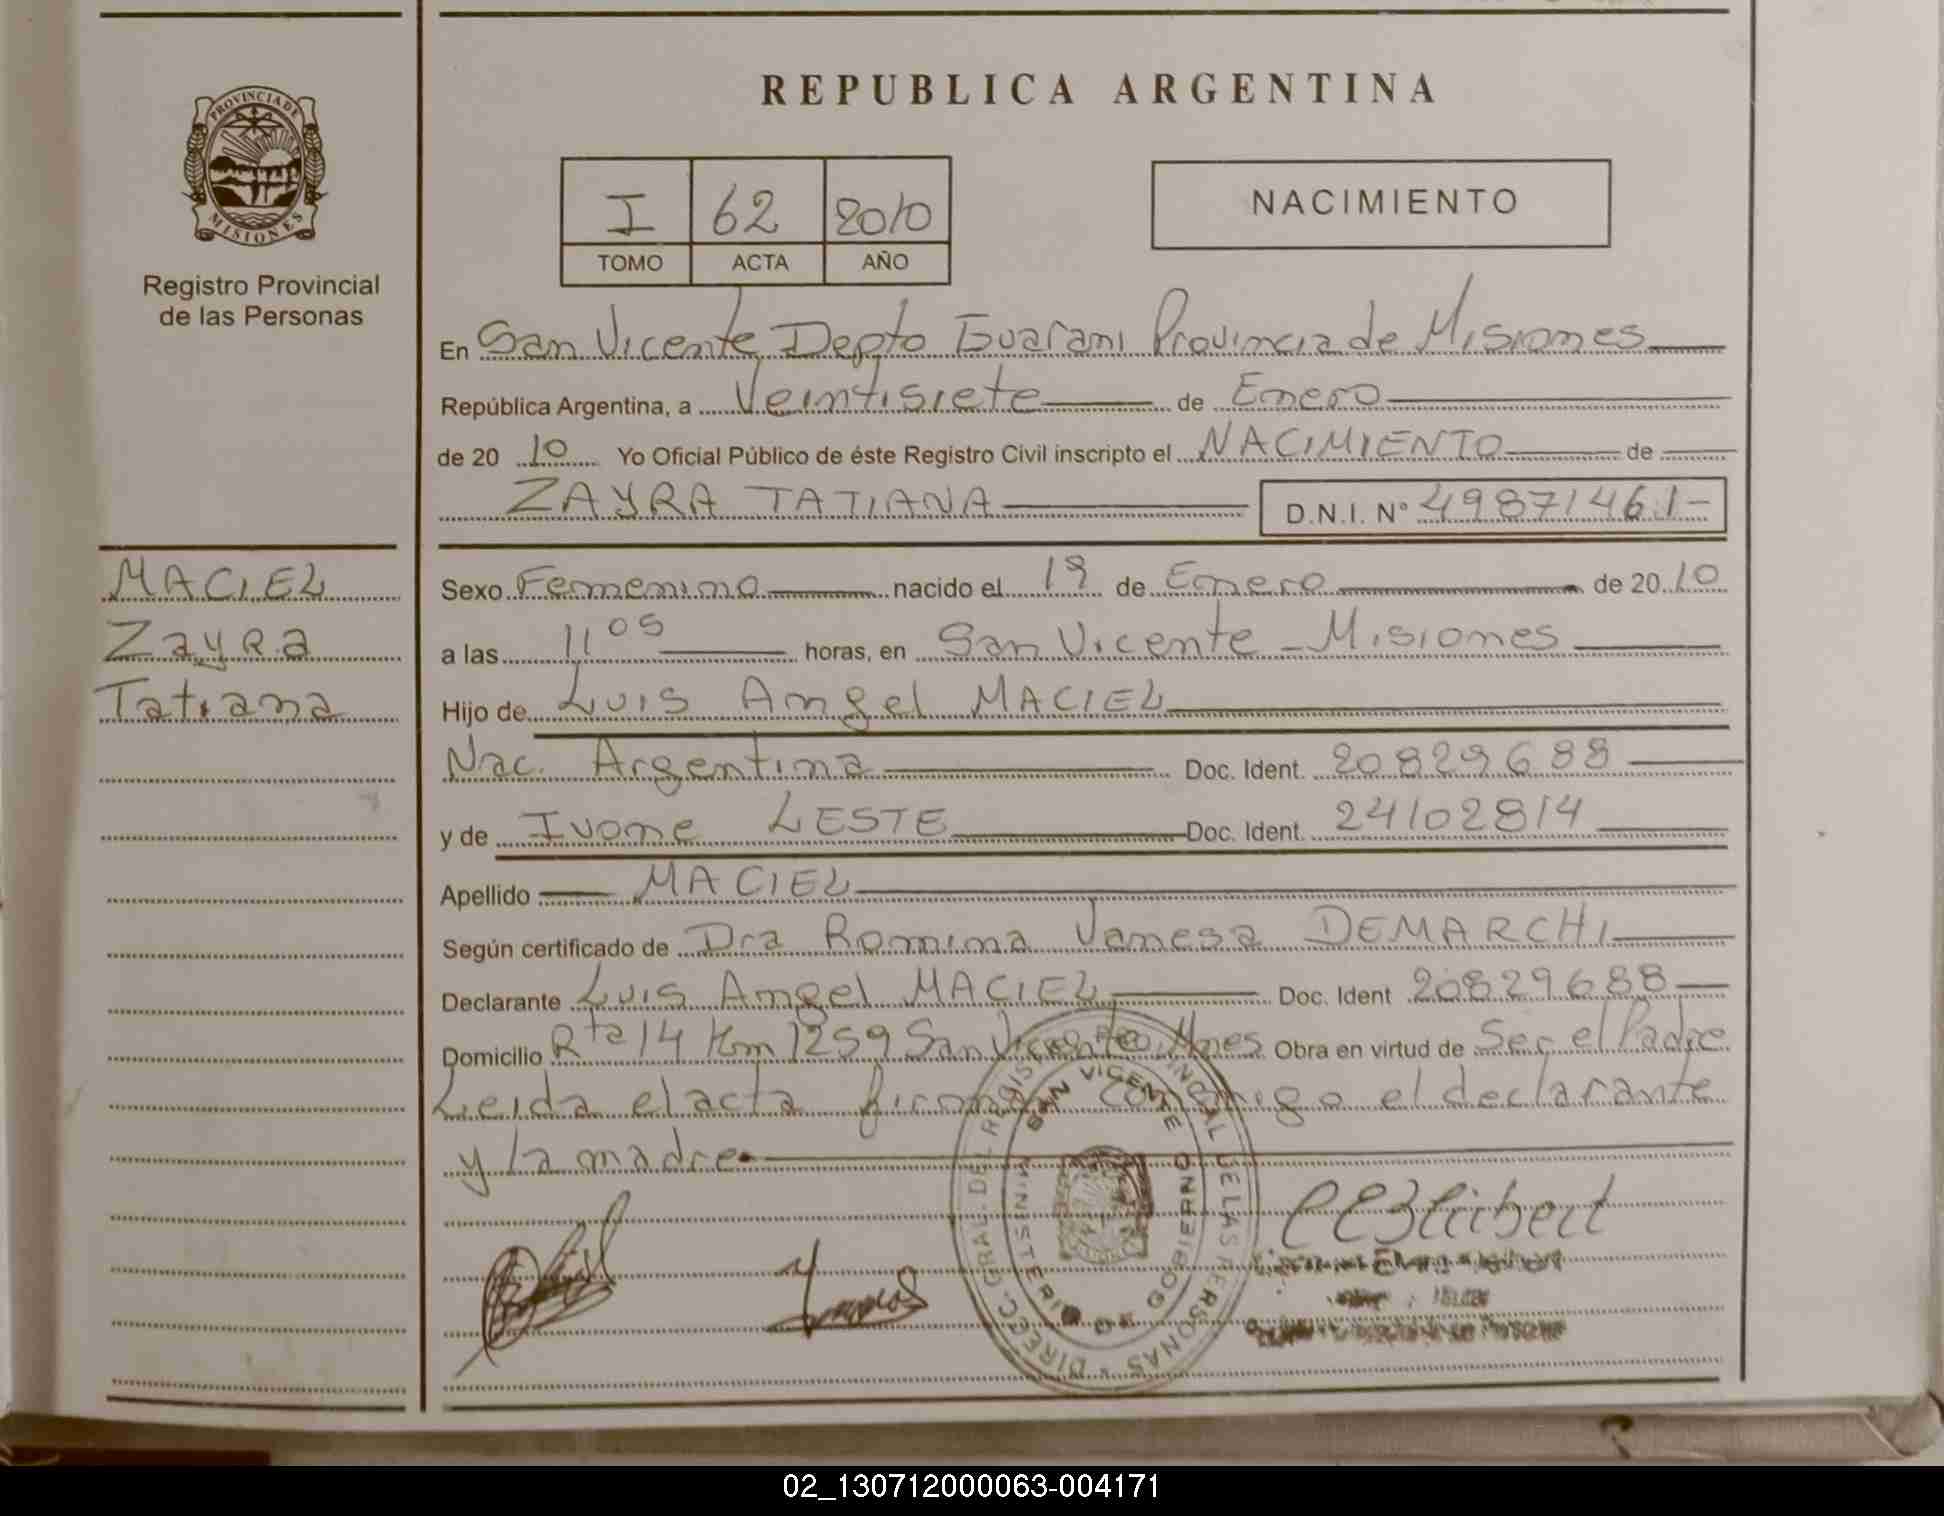 PROVINCIA DE
MISIONES
Registro Provincial
de las Personas
MACIEL
Zayra
Tatiana
REPUBLICA ARGENTINA
I 62 2010
TOMO ACTA AÑO
NACIMIENTO
En San Vicente Depto Guarani Provincia de Misiones
República Argentina, a Veintisiete de Enero
de 20 10 Yo Oficial Público de éste Registro Civil inscripto el NACIMIENTO de
ZAYRA TATIANA D.N.I. N° 49871461-
Sexo Femenino nacido el 19 de Enero de 20 10
a las 11 05 horas, en San Vicente - Misiones
Hijo de Luis Angel MACIEL
Nac. Argentina Doc. Ident. 20829688
y de Ivone LESTE Doc. Ident. 24102814
Apellido MACIEL
Según certificado de Dra Romina Vanesa DEMARCHI
Declarante Luis Angel MACIEL Doc. Ident 20829688
Domicilio Rta 14 Km 1259 San Vicente Mnes Obra en virtud de Ser el Padre
Leida el acta firman conmigo el declarante
y la madre.
DIREC. GRAL. DEL REGISTRO PROVINCIAL DE LAS PERSONAS
SAN VICENTE
MINISTERIO DE GOBIERNO
02_130712000063-004171